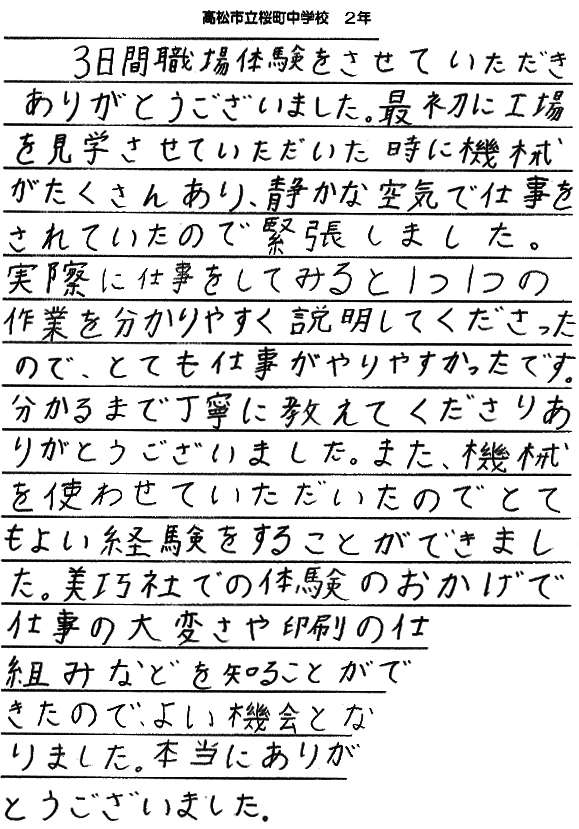 高松市立桜町中学校　2年
3日間職場体験をさせていただき
ありがとうございました。最初に工場
を見学させていただいた時に機械
がたくさんあり、静かな空気で仕事を
されていたので緊張しました。
実際に仕事をしてみると1つ1つの
作業を分かりやすく説明してくださった
ので、とても仕事がやりやすかったです。
分かるまで丁寧に教えてくださりあ
りがとうございました。また、機械
を使わせていただいたのでとて
もよい経験をすることができまし
た。美巧社での体験のおかげで
仕事の大変さや印刷の仕
組みなどを知ることがで
きたので、よい機会とな
りました。本当にありが
とうございました。